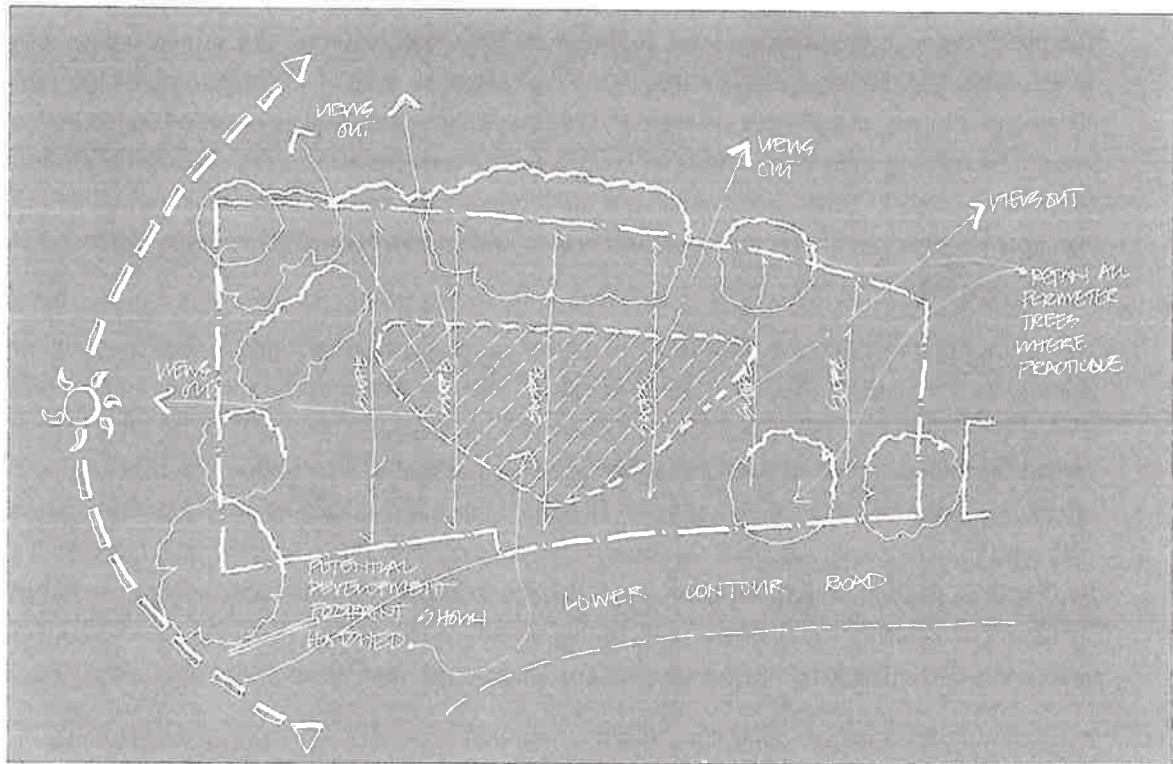 VIEWS
OUT
VIEWS
OUT
VIEWS OUT
RETAIN ALL
PERIMETER
TREES
WHERE
PRACTICABLE
VIEWS
OUT
SLOPE
SLOPE
SLOPE
SLOPE
SLOPE
SLOPE
POTENTIAL
DEVELOPMENT
FOOTPRINT SHOWN
HATCHED
LOWER CONTOUR ROAD